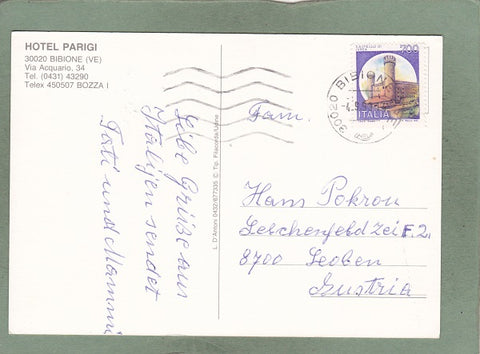 HOTEL PARIGI
30020 BIBIONE (VE)
Via Acquario, 34
Tel. (0431) 43290
Telex 450507 BOZZA I
Liebe Grüße aus
Italijen sendet
Fati und Mammi
L. D'Antoni 0432/877335 © Tip. Filacorda/Udine
700
ITALIA
30020 BIBIONE
Fam.
Hans Pokron
Lerchenfeldzei F. 2.
8700 Leoben
Austria